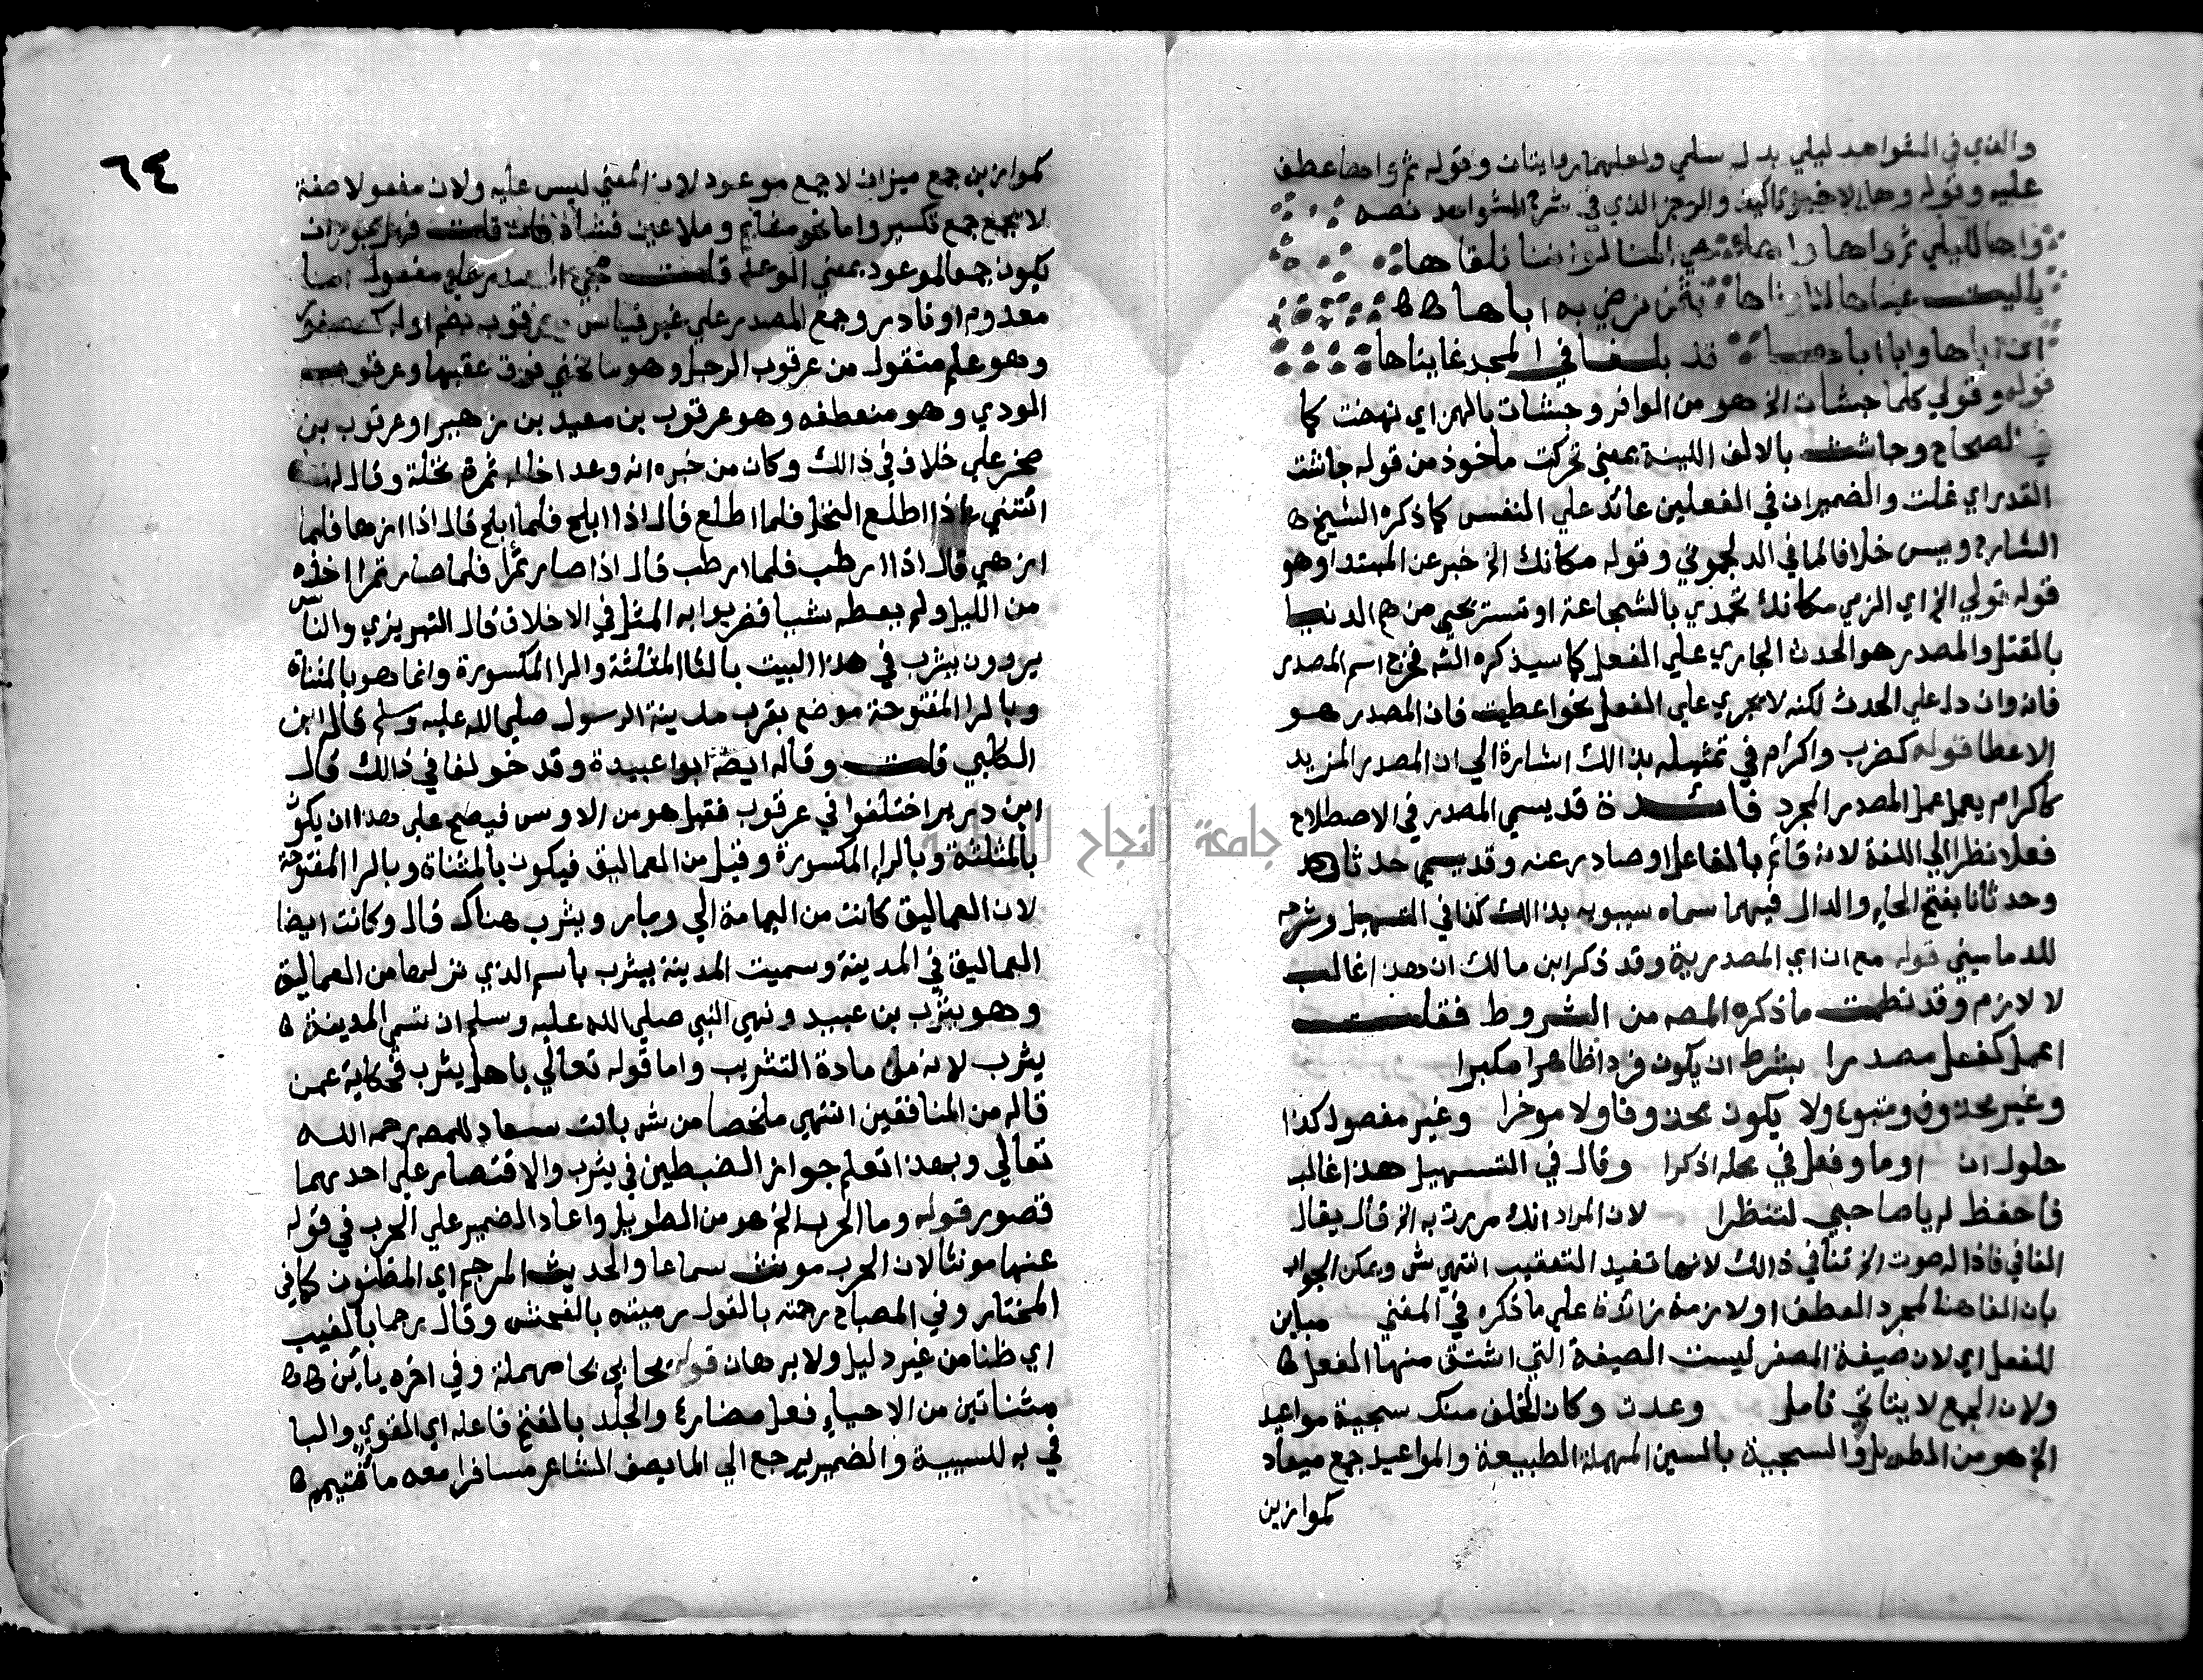 والذي في الشواهد ليلي بدل سلمي ولعلهما روايتان وقوله ثم واها عطف
عليه وقوله وها الاخير تاكيد والرجز الذي في شرح الشواهد نصه
واها لليلي ثم واها واها هي المنا لو اننا نلقاها
ياليت عيناها لنا وفاها بثمن نرضي به اباها
ان اباها وابا اباها قد بلغا في المجد غايتاها
قوله وقولي كلما جشأت الخ هو من الوافر وجشأت بالهمز اي نهضت كما
في الصحاح وجاشت بالالف اللينة بمعني تحركت ماخوذ من قوله جاشت
القدر اي غلت والضميران في الفعلين عائد علي النفس كما ذكره الشيخ
الشارح ويس خلافا لما في الدلجوني وقوله مكانك الخ خبر عن المبتدا وهو
قوله قولي الخ اي الزمي مكانك تحمدي بالشجاعة او تستريحي من هم الدنيا
بالقتل والمصدر هو الحدث الجاري علي الفعل كما سيذكره الش فخرج اسم المصدر
فانه وان دل علي الحدث لكنه لا يجري علي الفعل نحو اعطيت فان المصدر هو
الاعطا قوله كضرب واكرام في تمثيله بذالك اشارة الي ان المصدر المزيد
كاكرام يعمل عمل المصدر المجرد فائدة قد يسمي المصدر في الاصطلاح
فعلا نظرا الي اللغة لانه قائم بالفاعل او صادر عنه وقد يسمي حدثا
وحدثانا بفتح الحاء والدال فيهما سماه سيبويه بذالك كذا في التسهيل وشرحه
للدماميني قوله مع ان اي المصدرية وقد ذكر ابن مالك ان هذا غالب
لا لازم وقد نظمت ما ذكره المصه من الشروط فقلت
اعمل كفعل مصدرا بشرط ان يكون فردا ظاهرا مكبرا
وغير محدود ومتبوع ولا يكون محذوفا ولا موخرا وغير مفصول كذا
حلول ان اوما وفعل في محله اذكرا وقال في التسهيل هذا غالب
فاحفظ له ياصاحبي لتنظرا لان المراد انك مررت به الخ قال يقال
الفا في فاذا له صوت الخ تنافي ذالك لانها تفيد التعقيب انتهي ش ويمكن الجواب
بان الفا هنا لمجرد العطف او لازمة زائدة علي ما ذكره في المغني مباين
للفعل اي لان صيغة المصغر ليست الصيغة التي اشتق منها الفعل
ولان الجمع لا يتاتي تامل وعدت وكان الخلف منك سجية مواعيد
الخ هو من الطويل والسجية بالسين المهملة الطبيعة والمواعيد جمع ميعاد
كموازين
٦٤
كموازين جمع ميزان لا جمع موعود لان المعني ليس عليه ولان مفعولا صفة
لا يجمع جمع تكسير واما نحو مشايم وملاعين فشاذ فان قلت فهل يجوز ان
يكون جمعا لموعود بمعني الوعد قلت مجي المصدر علي مفعول اما
معدوم او نادر وجمع المصدر علي غير قياس وعرقوب بضم اوله كعصفور
وهو علم منقول من عرقوب الرجل وهو ما نحني فوق عقبها وعرقوب
الودي وهو منعطفه وهو عرقوب بن معيد بن زهير او عرقوب بن
صخر علي خلاف في ذالك وكان من خبره انه وعد اخا له ثمرة نخلة وقال له
ائتني اذا اطلع النخل فلما اطلع قال اذا ابلح فلما ابلح قال اذا ازها فلما
ازهي قال اذا ارطب فلما ارطب قال اذا صار تمرا فلما صار تمرا اخذه
من الليل ولم يعطه شيا فضربوا به المثل في الاخلاف قال التبريزي والناس
يروون يثرب في هذا البيت بالثا المثلثة والرا المكسورة وانما هو بالمثناة
وبالرا المفتوحة موضع بقرب مدينة الرسول صلي الله عليه وسلم قاله ابن
الكلبي قلت وقاله ايضا ابوا عبيدة وقد خولفا في ذالك قال
ابن دريد اختلفوا في عرقوب فقيل هو من الاوس فيصح علي هذا ان يكون
بالمثلثة وبالراء المكسورة وقيل من العماليق فيكون بالمثناة وبالرا المفتوحة
لان العماليق كانت من اليمامة الي وبار ويثرب هناك قال وكانت ايضا
العماليق في المدينة وسميت المدينة بيثرب باسم الذي نزلها من العماليق
وهو يثرب بن عبيد ونهي النبي صلي الله عليه وسلم ان تسمي المدينة
يثرب لانه من مادة التثريب واما قوله تعالي ياهل يثرب فحكاية عمن
قاله من المنافقين انتهي ملخصا من ش بانت سعاد للمصه رحمه الله
تعالي وبهذا تعلم جواز الضبطين في يثرب والاقتصار علي احدهما
قصور قوله وما الحرب الخ هو من الطويل واعاد الضمير علي الحرب في قوله
عنها مونثا لان الحرب مونث سماعا والحديث المرجم اي المظنون كما في
المختار وفي المصباح رجمته بالقول رميته بالفحش وقال رجما بالغيب
اي ظنا من غير دليل ولا برهان قوله يحايي بحا مهملة وفي اخره يائين
مثناتين من الاحياء فعل مضارع والجلد بالفتح فاعله اي القوي والبا
في به للسببية والضمير يرجع الي الما يصف الشاعر مسافرا معه ما فتيمم